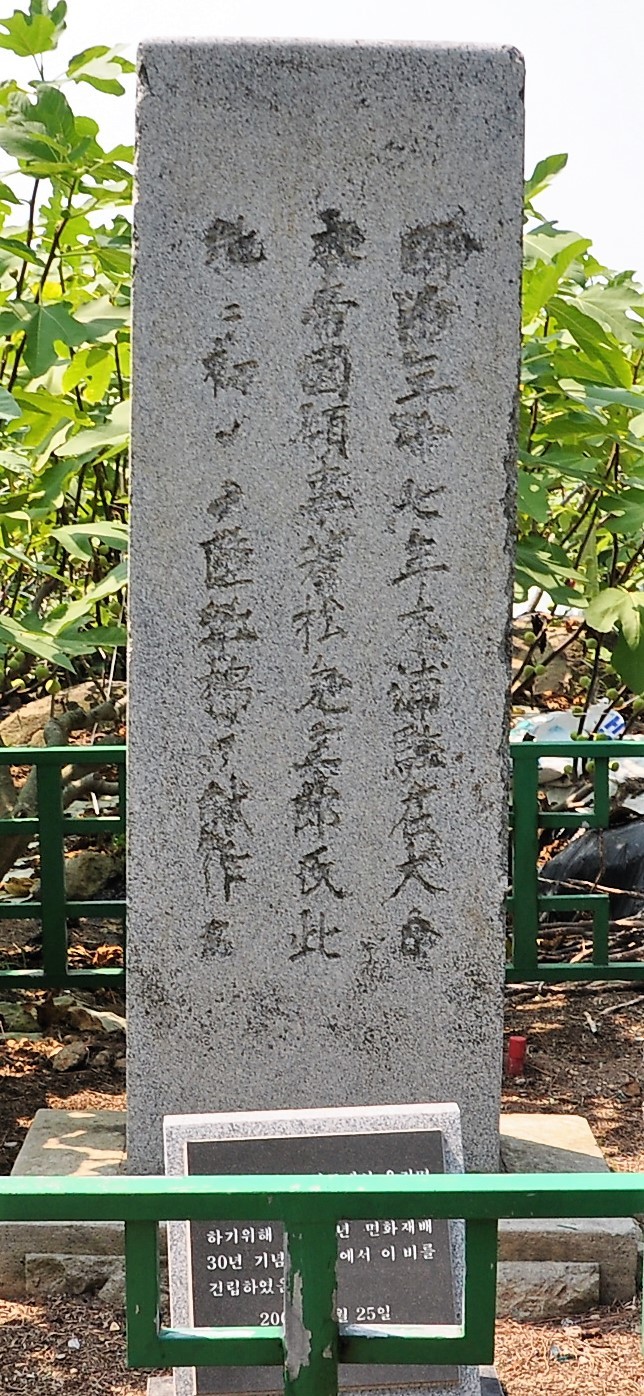 明治三拾七年木浦駐在大日
本帝國領事若松兎三郎氏此
地ニ初メテ陸地棉ヲ試作ス
하기위해 년 면화재배
30년 기념 에서 이 비를
건립하였
200 월 25일